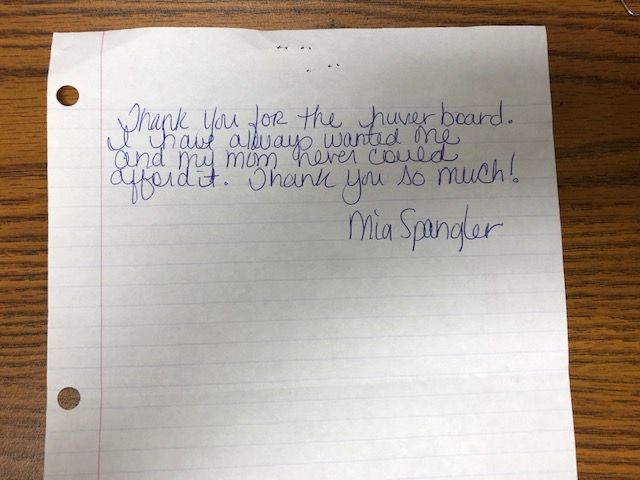 Thank you for the huverboard.
I have always wanted one
and my mom never could
afford it. Thank you so much!
Mia Spangler